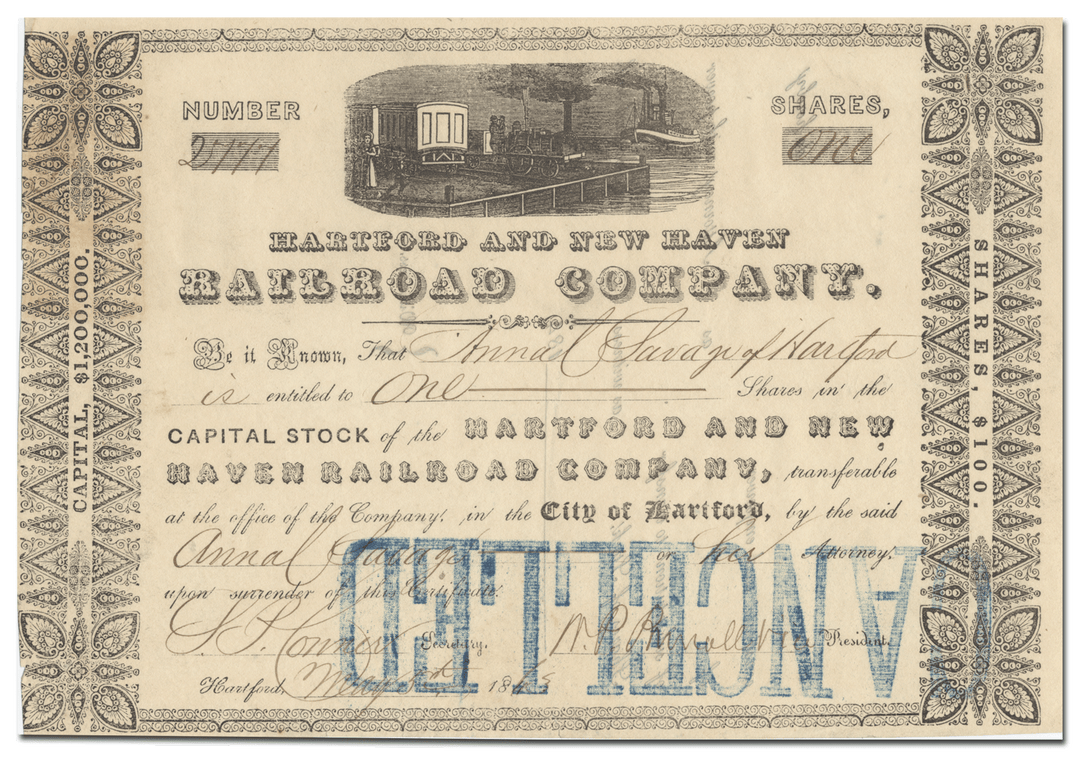 NUMBER
2177
SHARES,
One
HARTFORD AND NEW HAVEN
RAILROAD COMPANY.
Be it Known, That Anna Savage of Hartford
is entitled to One Shares in the
CAPITAL STOCK of the HARTFORD AND NEW
HAVEN RAILROAD COMPANY, transferable
at the office of the Company, in the City of Hartford, by the said
Anna Savage or her Attorney,
upon surrender of this Certificate.
Secretary. President.
Hartford, May 184
CAPITAL, $1,200,000.
SHARES, $100.
CANCELLED